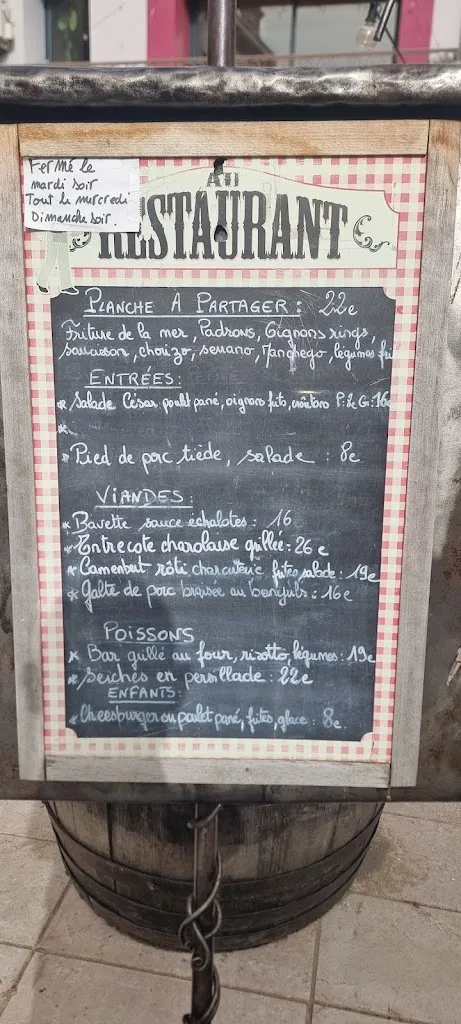 Fermé le
mardi soir
Tout le mercredi
Dimanche soir.
AU
RESTAURANT
PLANCHE À PARTAGER : 22e
Friture de la mer, Padrons, Oignons rings,
saucisson, chorizo, serrano, Manchego, légumes fri
ENTRÉES :
* Salade César, poulet pané, oignons frits, croûtons P: & G: 16e
*
* Pied de porc tiède, salade : 8e
VIANDES :
* Bavette sauce échalotes : 16
* Entrecote charolaise grillée : 26 e
* Camembert rôti charcuterie frites salade : 19e
* Galte de porc braisée au banyuls : 16 e
POISSONS
* Bar grillé au four, risotto, légumes : 19e
* Seiches en persillade : 22e
ENFANTS :
* Cheesburger ou poulet pané, frites, glace : 8e